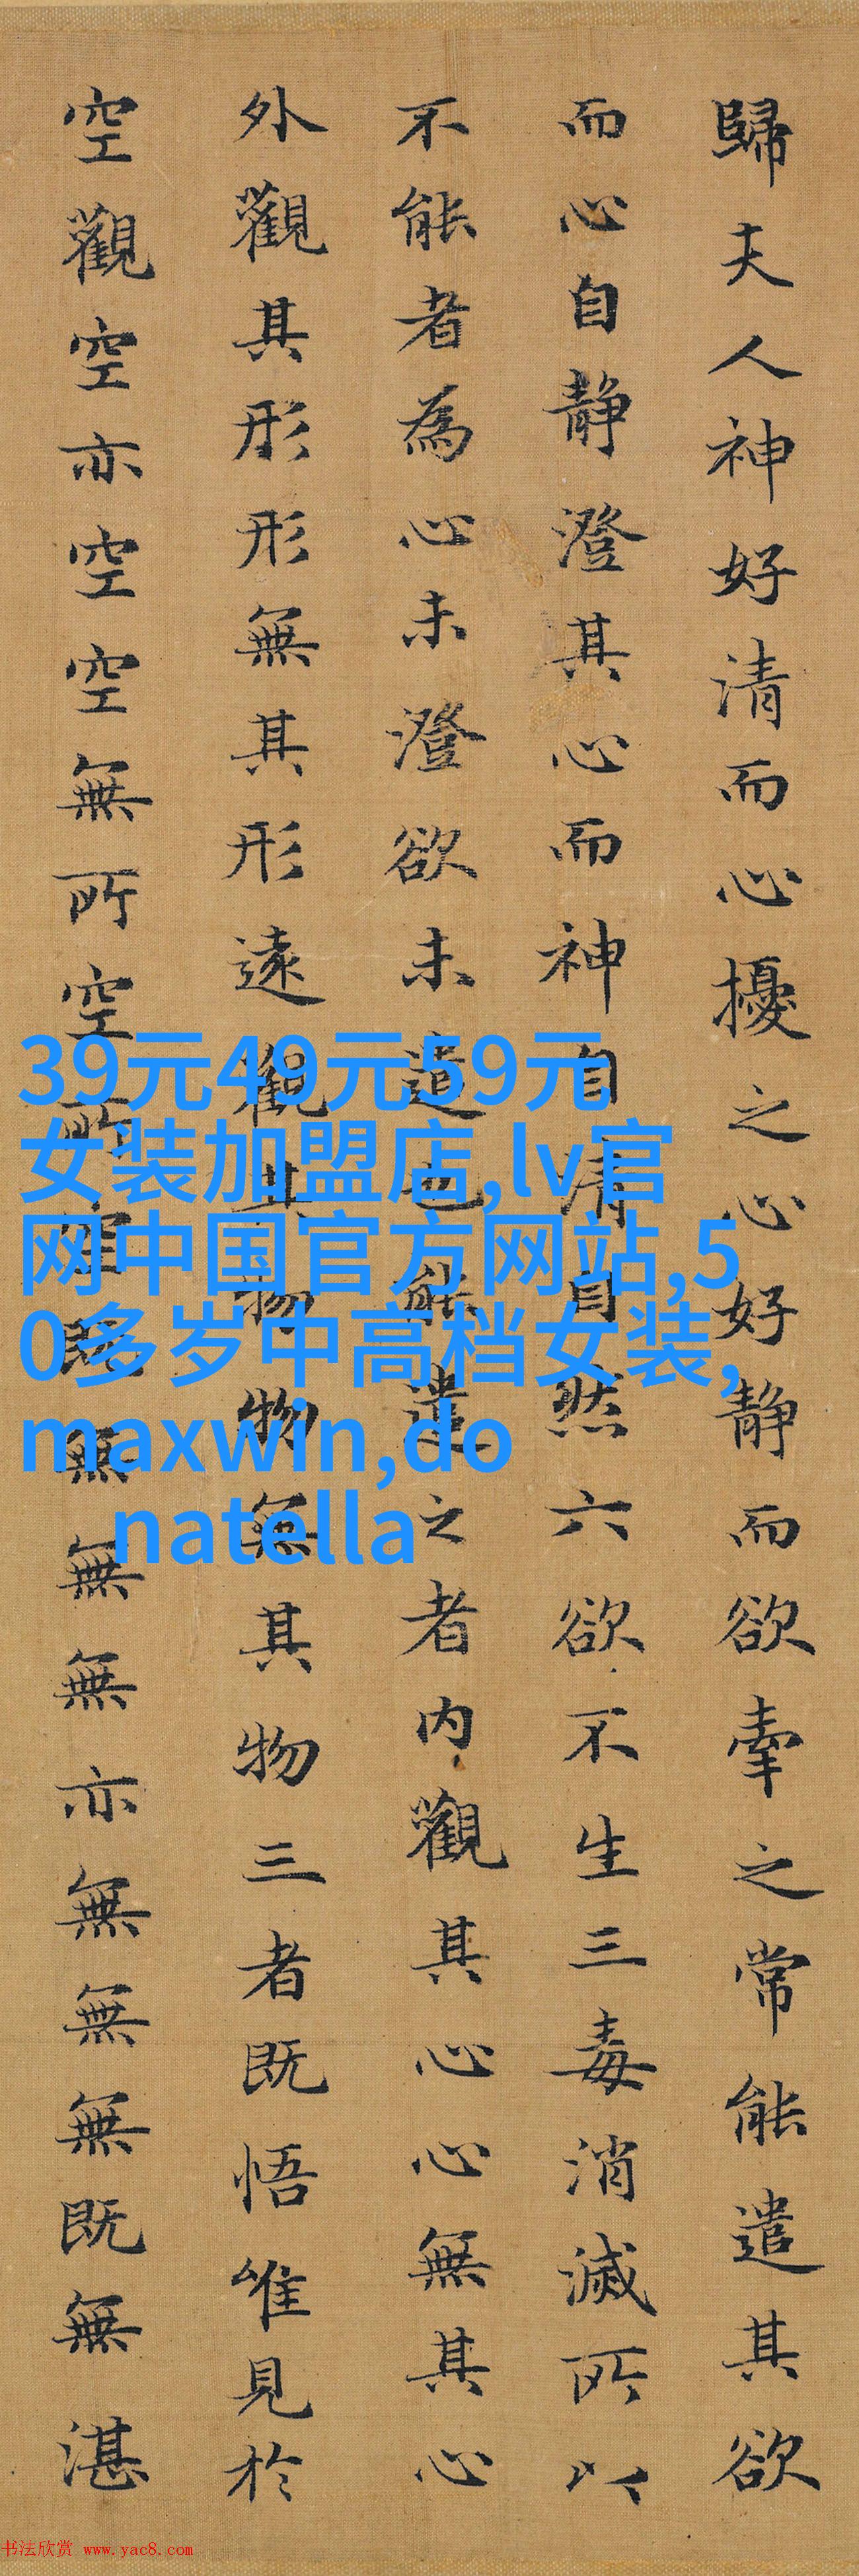 歸夫人神好清而心擾之心好靜而欲牽之常能遣其欲
而心自靜澄其心而神自清自然六欲不生三毒消滅所以
不能者為心未澄欲未遣也能遣之者内觀其心心無其心
外觀其形形無其形遠觀其物物無其物三者既悟唯見於
空觀空亦空空無所空所空既無無無亦無無無既無湛
39元49元59元
女装加盟店,lv官
网中国官方网站,5
0多岁中高档女装,
maxwin,do
natella
书法欣赏 www.yac8.com